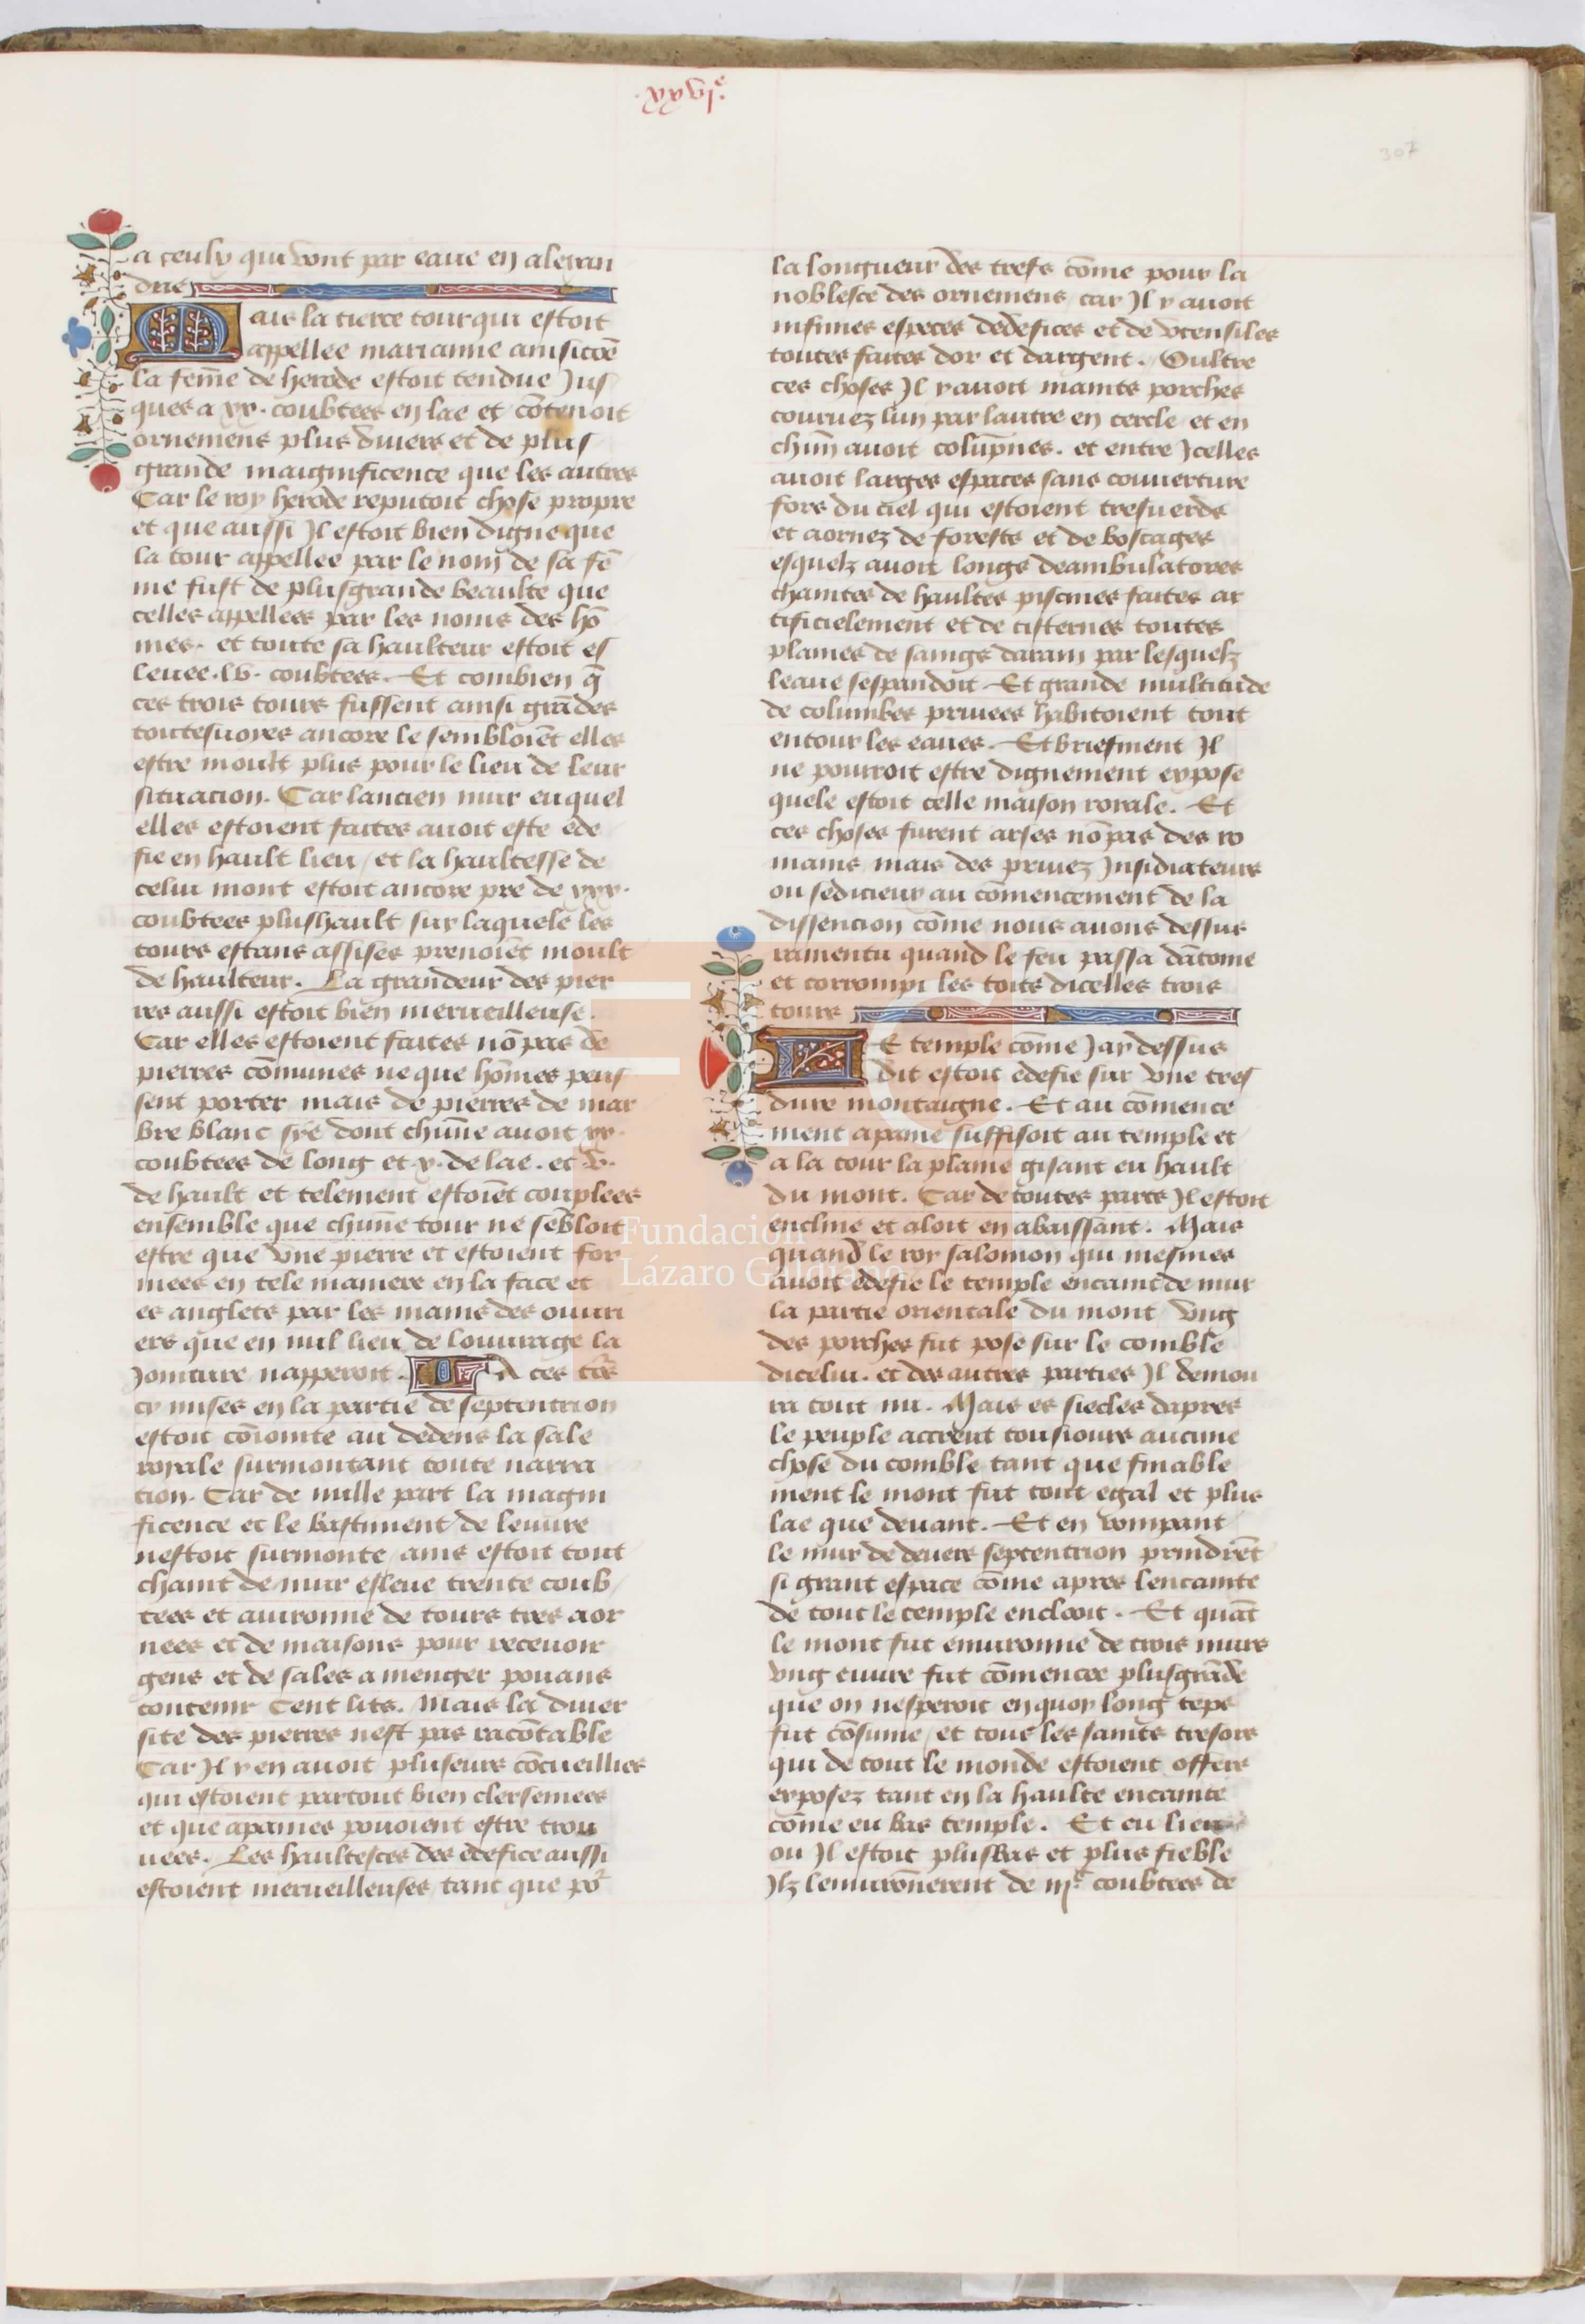 307
a ceulx qui vont par eaue en alexan
drie
Mais la tierce tour qui estoit
appellee marianne ainsi cõe
la fem̃e de herode estoit tendue Jus
ques a xx. coubtees en lae et cõtenoit
ornemens plus diuers et de plus
grande maignificence que les autres
Car le roy herode reputoit chose propre
et que aussi Jl estoit bien digne que
la tour appellee par le nom de sa fẽ
me fust de plusgrande beaulte que
celles appellees par les noms des hõ
mes. et toute sa haulteur estoit es
leuee .lv. coubtees. Et combien q̃
ces trois tours fussent ainsi grãdes
toutesuoyes ancore le sembloiẽt elles
estre moult plus pour le lieu de leur
situacion. Car lancien mur euquel
elles estoient faites auoit este ede
fie en hault lieu / et la haultesse de
celui mont estoit ancore pre de xxx.
coubtees plushault sur laquele les
tours estans assises prenoiẽt moult
de haulteur. La grandeur des pier
res aussi estoit bien merueilleuse.
Car elles estoient faites nõ pas de
pierres cõmunes ne que hõmes peus
sent porter mais de pierres de mar
bre blanc sỹe dont chũne auoit xx.
coubtees de long et x. de lae. et v.
de hault et telement estoiẽt couplees
ensemble que chũne tour ne sẽbloit
estre que vne pierre et estoient for
mees en tele maniere en la face et
es anglets par les mains des ouuri
ers que en nul lieu de louurage la
Jointure napperoit. A ces t̃rs
cy mises en la partie de septentrion
estoit cõiointe au dedens la sale
royale surmontant toute narra
cion. Car de nulle part la magni
ficence et le bastiment de leuure
nestoit surmonte / ains estoit tout
chaint de mur esleue trente coub
tees et auironne de tours tres aor
nees et de maisons pour receuoir
gens et de sales a menger pouans
contenir Cent lits. Mais la diuer
site des pierres nest pas racõtable
Car Jl y en auoit pluseurs cõcueillies
qui estoient partout bien clersemees
et que apaines pouoient estre trou
uees. Les haultesces des edefice aussi
estoient merueilleuses tant que po²
la longueur des trefs cõme pour la
noblesce des ornemens / car Jl y auoit
infinies especes dedefices et de vtensiles
toutes faites dor et dargent. Oultre
ces choses Jl y auoit maints porches
couruez lun par lautre en cercle et en
chũn auoit colũpnes. et entre Jcelles
auoit larges espaces sans couuerture
fors du ciel qui estoient tresuerds
et aornez de forests et de boscages
esquelz auoit longs deambulatores
chaintes de haultes piscines faites ar
tificielement et de cisternes toutes
plaines de saings darain par lesquelz
leaue sespandoit Et grande multitude
de columbes priuees habitoient tout
entour les eaues. Et briefment Jl
ne pourroit estre dignement expose
quele estoit celle maison royale. Et
ces choses furent arses nõ pas des ro
mains mais des priuez Jnsidiateurs
ou sedicieux au cõmencement de la
dissencion cõme nous auons dessus
ramentu quand le feu passa dãtome
et corrompi les toits dicelles trois
tours
LE temple cõme Jay dessus
dit estoit edefie sur vne tres
dure montaigne. Et au cõmence
ment apaine suffisoit au temple et
a la tour la plaine gisant eu hault
du mont. Car de toutes parts Jl estoit
encline et aloit en abaissant. Mais
quand le roy salomon qui mesmes
auoit edefie le temple encaint de mur
la partie orientale du mont / vng
des porches fut pose sur le comble
dicelui. et des autres parties Jl demou
ra tout nu. Mais es siecles dapres
le peuple accreut tousiours aucune
chose du comble tant que finable
ment le mont fut tout egal et plus
lae que deuant. Et en rompant
le mur de deuers septentrion prindrẽt
si grant espace cõme apres lencainte
de tout le temple encloit. Et quãt
le mont fut enuironne de trois murs
vng euure fut cõmencee plusgrãde
que on nesperoit en quoy long tẽps
fut cõsume / et tous les saints tresors
qui de tout le monde estoient offers
exposez tant en la haulte encainte
cõme eu bas temple. Et eu lieu
ou Jl estoit plusbas et plus fieble
Jlz lenuirõnerent de iijᶜ coubtees de
Fundación
Lázaro Galdiano